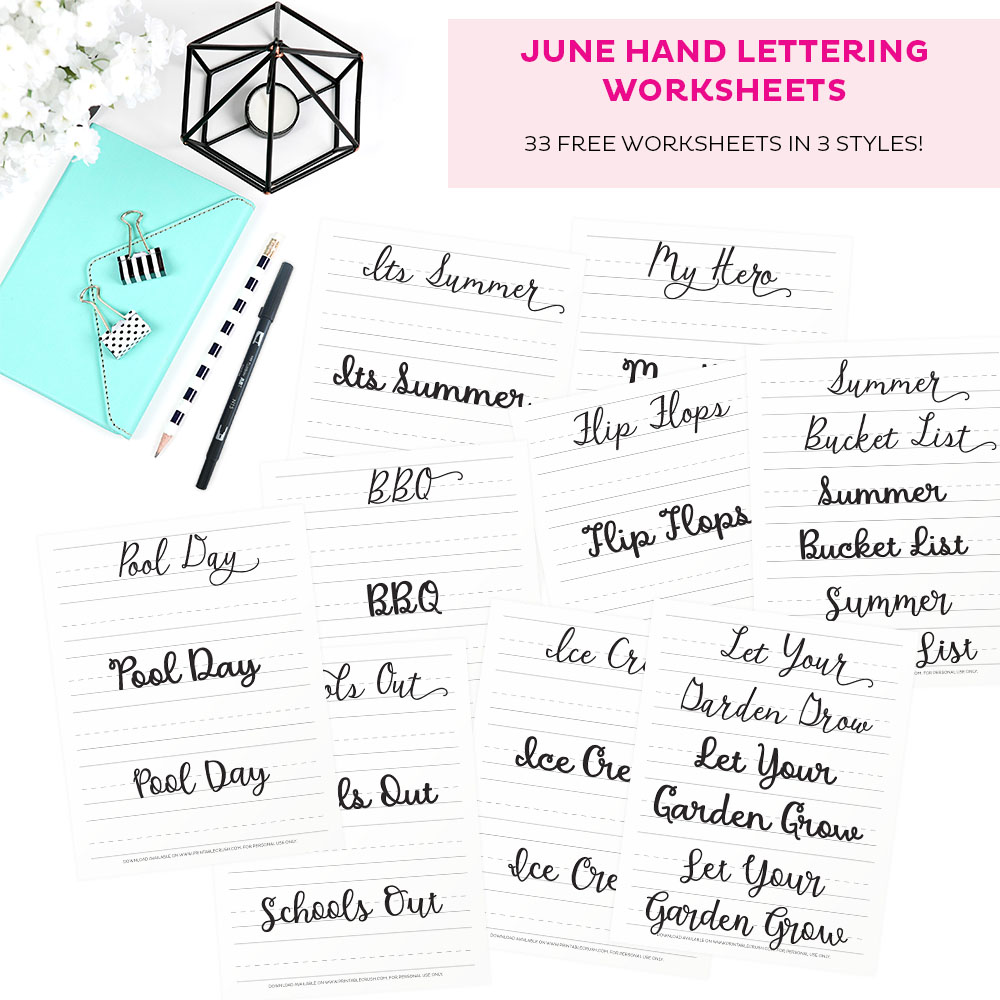 JUNE HAND LETTERING
WORKSHEETS
33 FREE WORKSHEETS IN 3 STYLES!
Its Summer
Its Summer
My Hero
Flip Flops
Flip Flops
Summer
Bucket List
Summer
Bucket List
Summer
List
BBQ
BBQ
Pool Day
Pool Day
Pool Day
DOWNLOAD AVAILABLE ON WWW.PRINTABLECRUSH.COM. FOR PERSONAL USE ONLY.
Out
Out
Schools Out
DOWNLOAD AVAILABLE ON WWW.PRINTABLECRUSH.COM. FOR PERSONAL USE ONLY.
Ice Cre
Ice Cre
Ice Cre
DOWNLOAD AVAILABLE ON WWW.PRINTABLECRUSH.COM. FOR PERSONAL USE ONLY.
Let Your
Garden Grow
Let Your
Garden Grow
Let Your
Garden Grow
DOWNLOAD AVAILABLE ON WWW.PRINTABLECRUSH.COM. FOR PERSONAL USE ONLY.